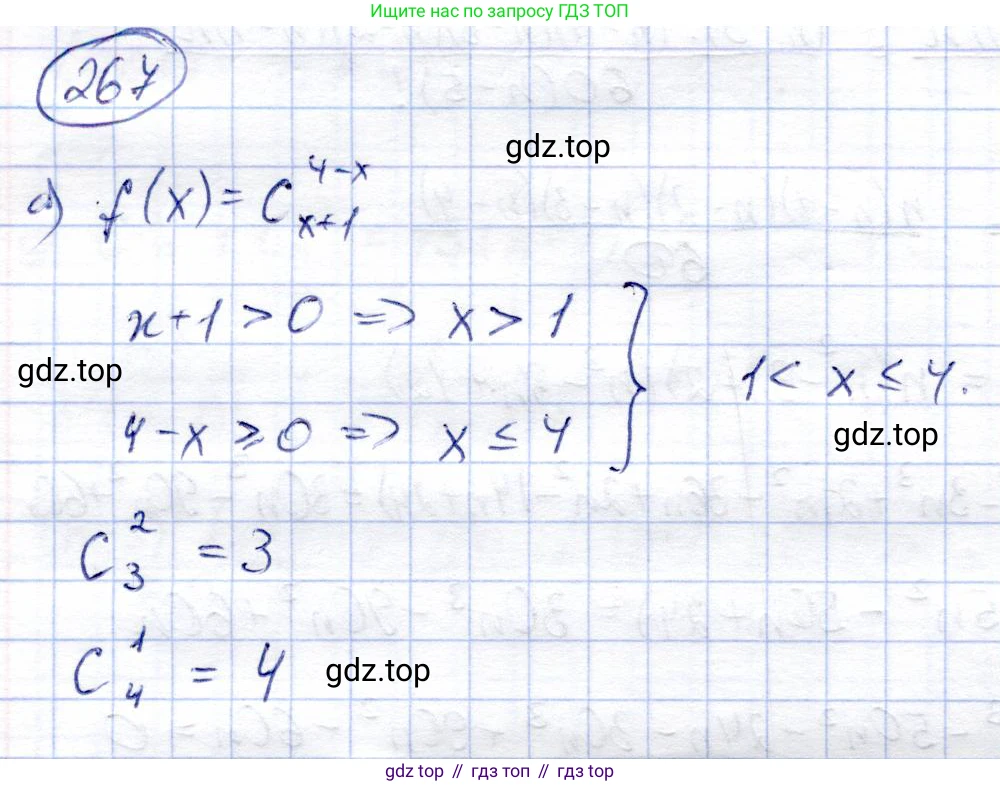 Ищите нас по запросу ГДЗ ТОП
267
gdz.top
а) f(x) = C_{x+1}^{4-x}
x+1 > 0 => x > 1
gdz.top
4-x ≥ 0 => x ≤ 4
} 1 < x ≤ 4.
gdz.top
C_3^2 = 3
C_4^1 = 4
gdz.top
gdz top // гдз топ // gdz top